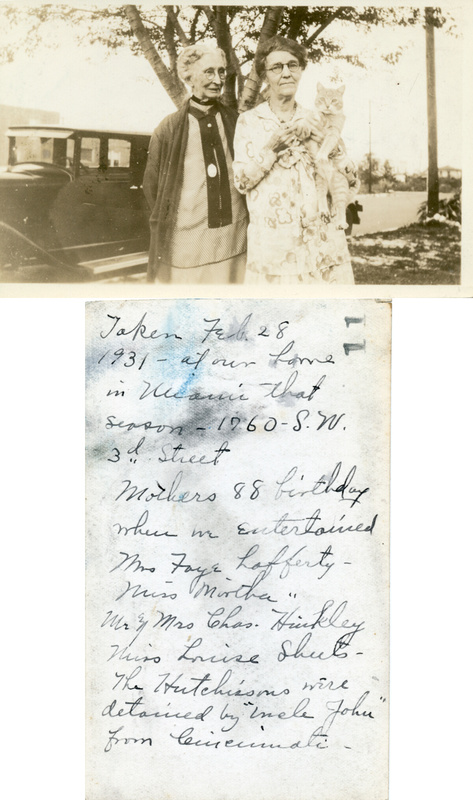 Taken Feb. 28
11
1931 - at our home
in Miami that
season - 1760 - S.W.
3d. Street
Mothers 88 birthday
when we entertained
Mrs Faye Lafferty -
Miss Martha "
Mr & Mrs Chas. Hinkley
Miss Louise Shuts -
The Hutchisons were
detained by "Uncle John"
from Cincinnati -